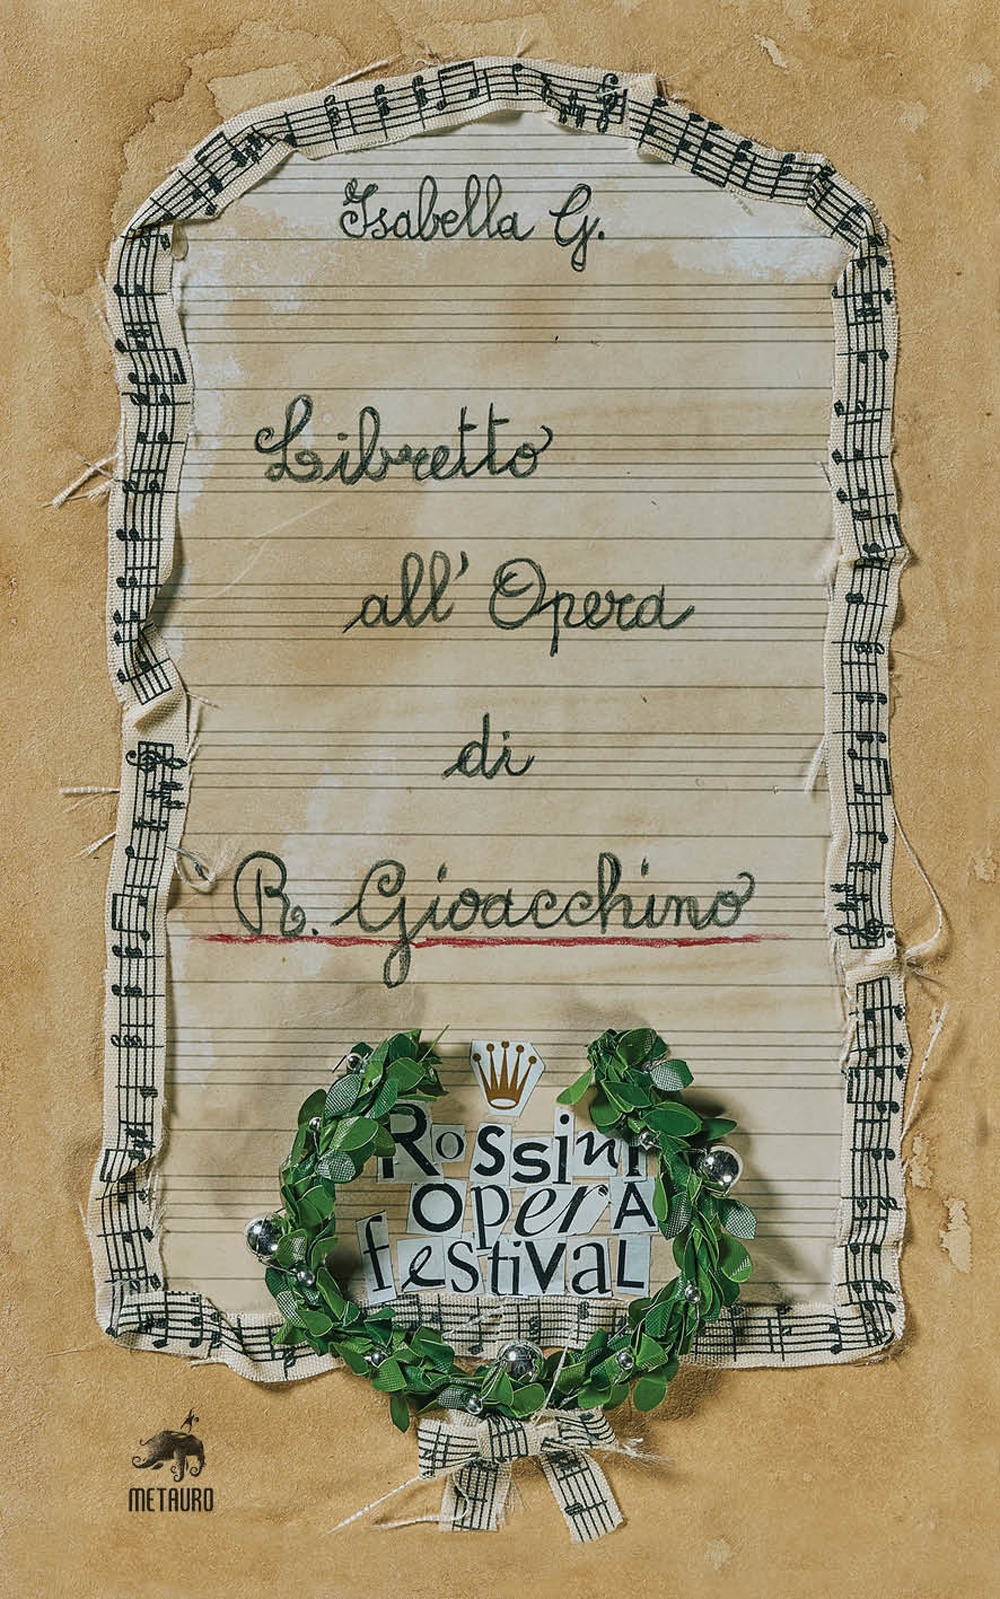 Isabella G.
Libretto
all' Opera
di
R. Gioacchino
Rossini
opera
festival
METAURO